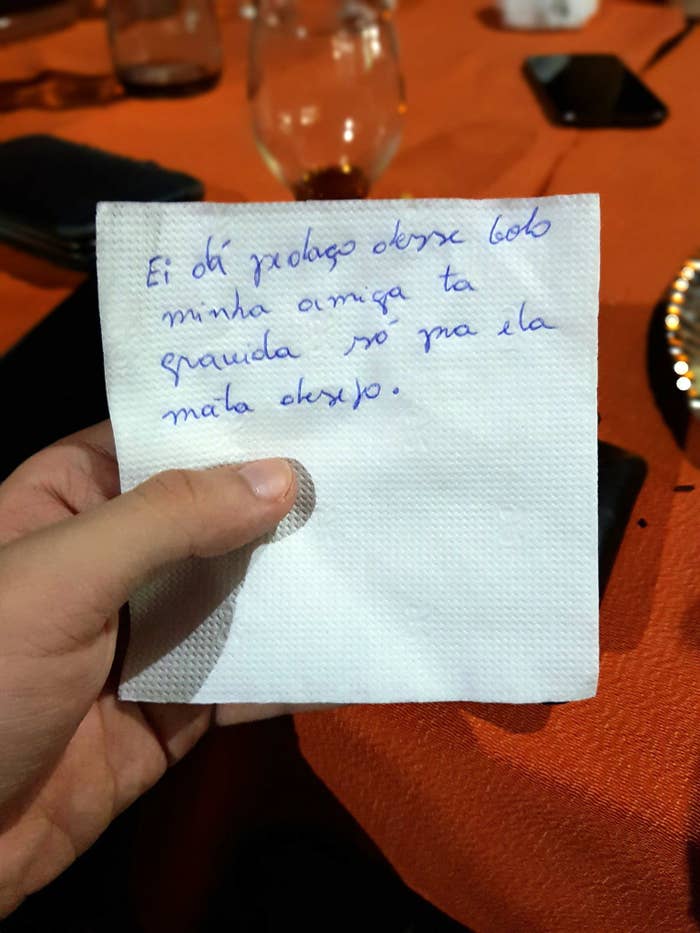 Ei dá pedaço desse bolo
minha amiga ta
gravida só pra ela
mata desejo.